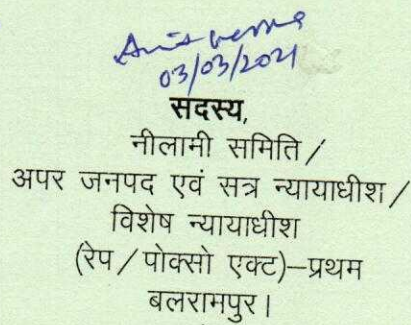 03/03/2021
सदस्य,
नीलामी समिति /
अपर जनपद एवं सत्र न्यायाधीश /
विशेष न्यायाधीश
(रेप / पोक्सो एक्ट)–प्रथम
बलरामपुर।